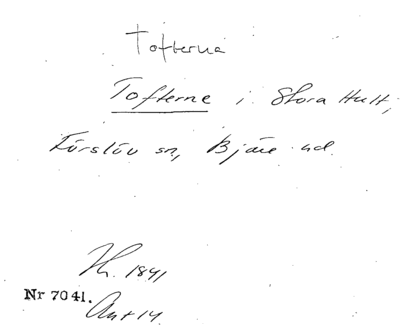 Tofterna
Tofterne i Stora Hult,
Förslöv sn, Bjäre hd.
Lh. 1841
Nr 7041.
Ant 14